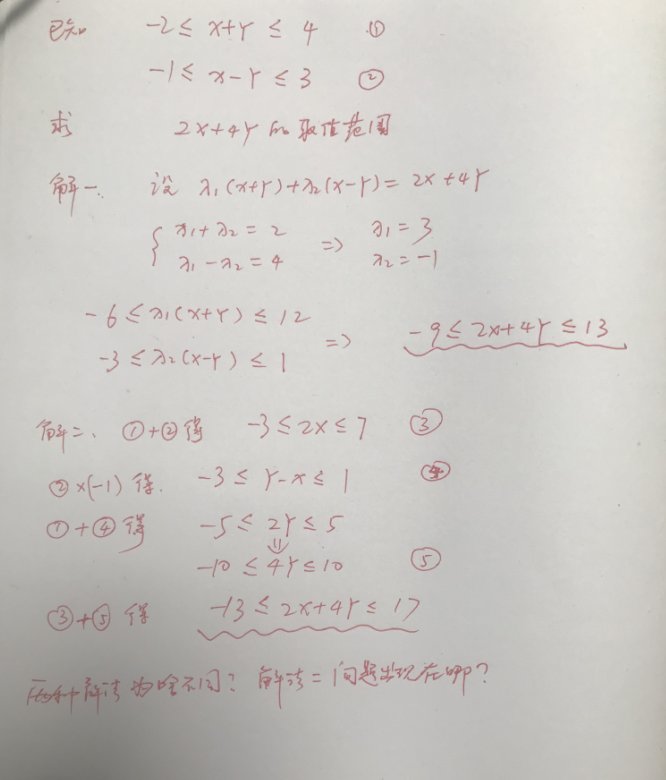 已知 -2≤x+y≤4 ①
-1≤x-y≤3 ②
求 2x+4y的取值范围
解一、设 λ₁(x+y)+λ₂(x-y)=2x+4y
{ λ₁+λ₂=2 => λ₁=3
λ₁-λ₂=4 λ₂=-1
-6≤λ₁(x+y)≤12
=> -9≤2x+4y≤13
-3≤λ₂(x-y)≤1
解二、①+②得 -3≤2x≤7 ③
②×(-1)得. -3≤y-x≤1 ④
①+④得 -5≤2y≤5
⇓
-10≤4y≤10 ⑤
③+⑤得 -13≤2x+4y≤17
两种解法为啥不同？解法二问题出现在哪？